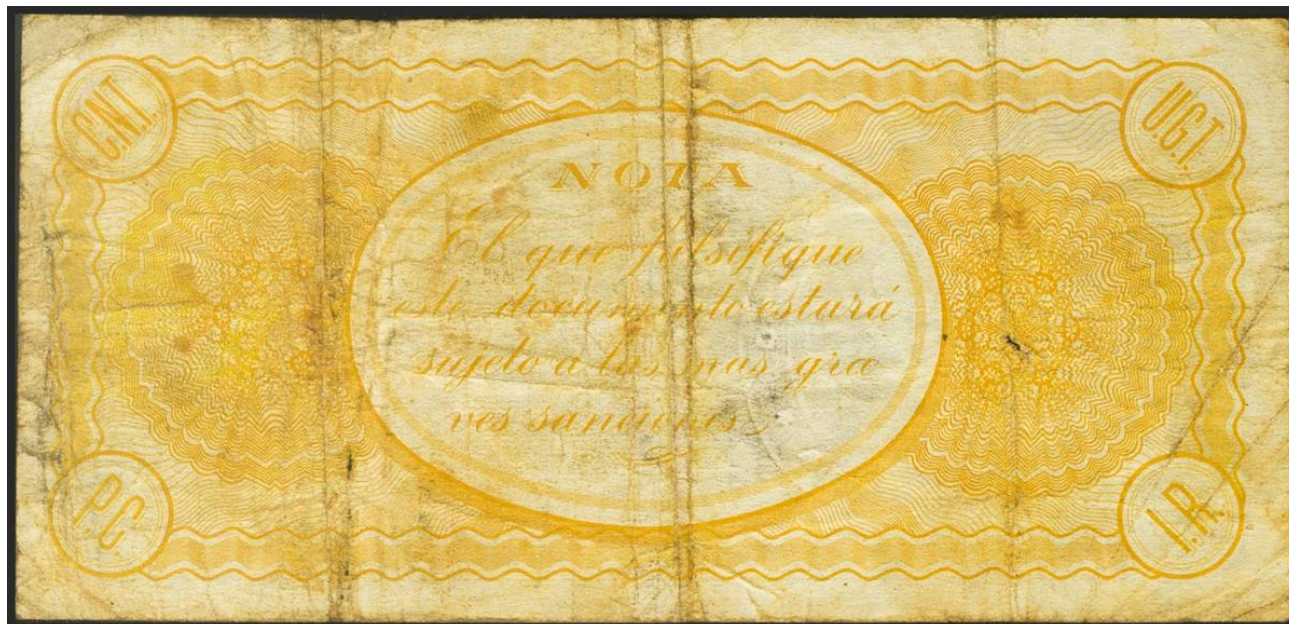 C.N.T.
U.G.T.
NOTA
El que falsifique
este documento estará
sujeto a las mas gra
ves sanciones
P.C.
I.R.